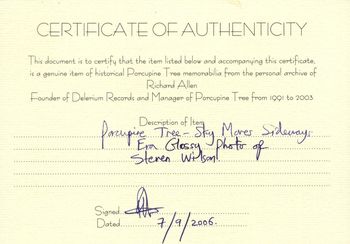 CERTIFICATE OF AUTHENTICITY
This document is to certify that the item listed below and accompanying this certificate,
is a genuine item of historical Porcupine Tree memorabilia from the personal archive of
Richard Allen
Founder of Delerium Records and Manager of Porcupine Tree from 1991 to 2003
Description of Item
Porcupine Tree - Sky Moves Sideways
Era Glossy Photo of
Steven Wilson!
Signed
Dated 7/9/2006.